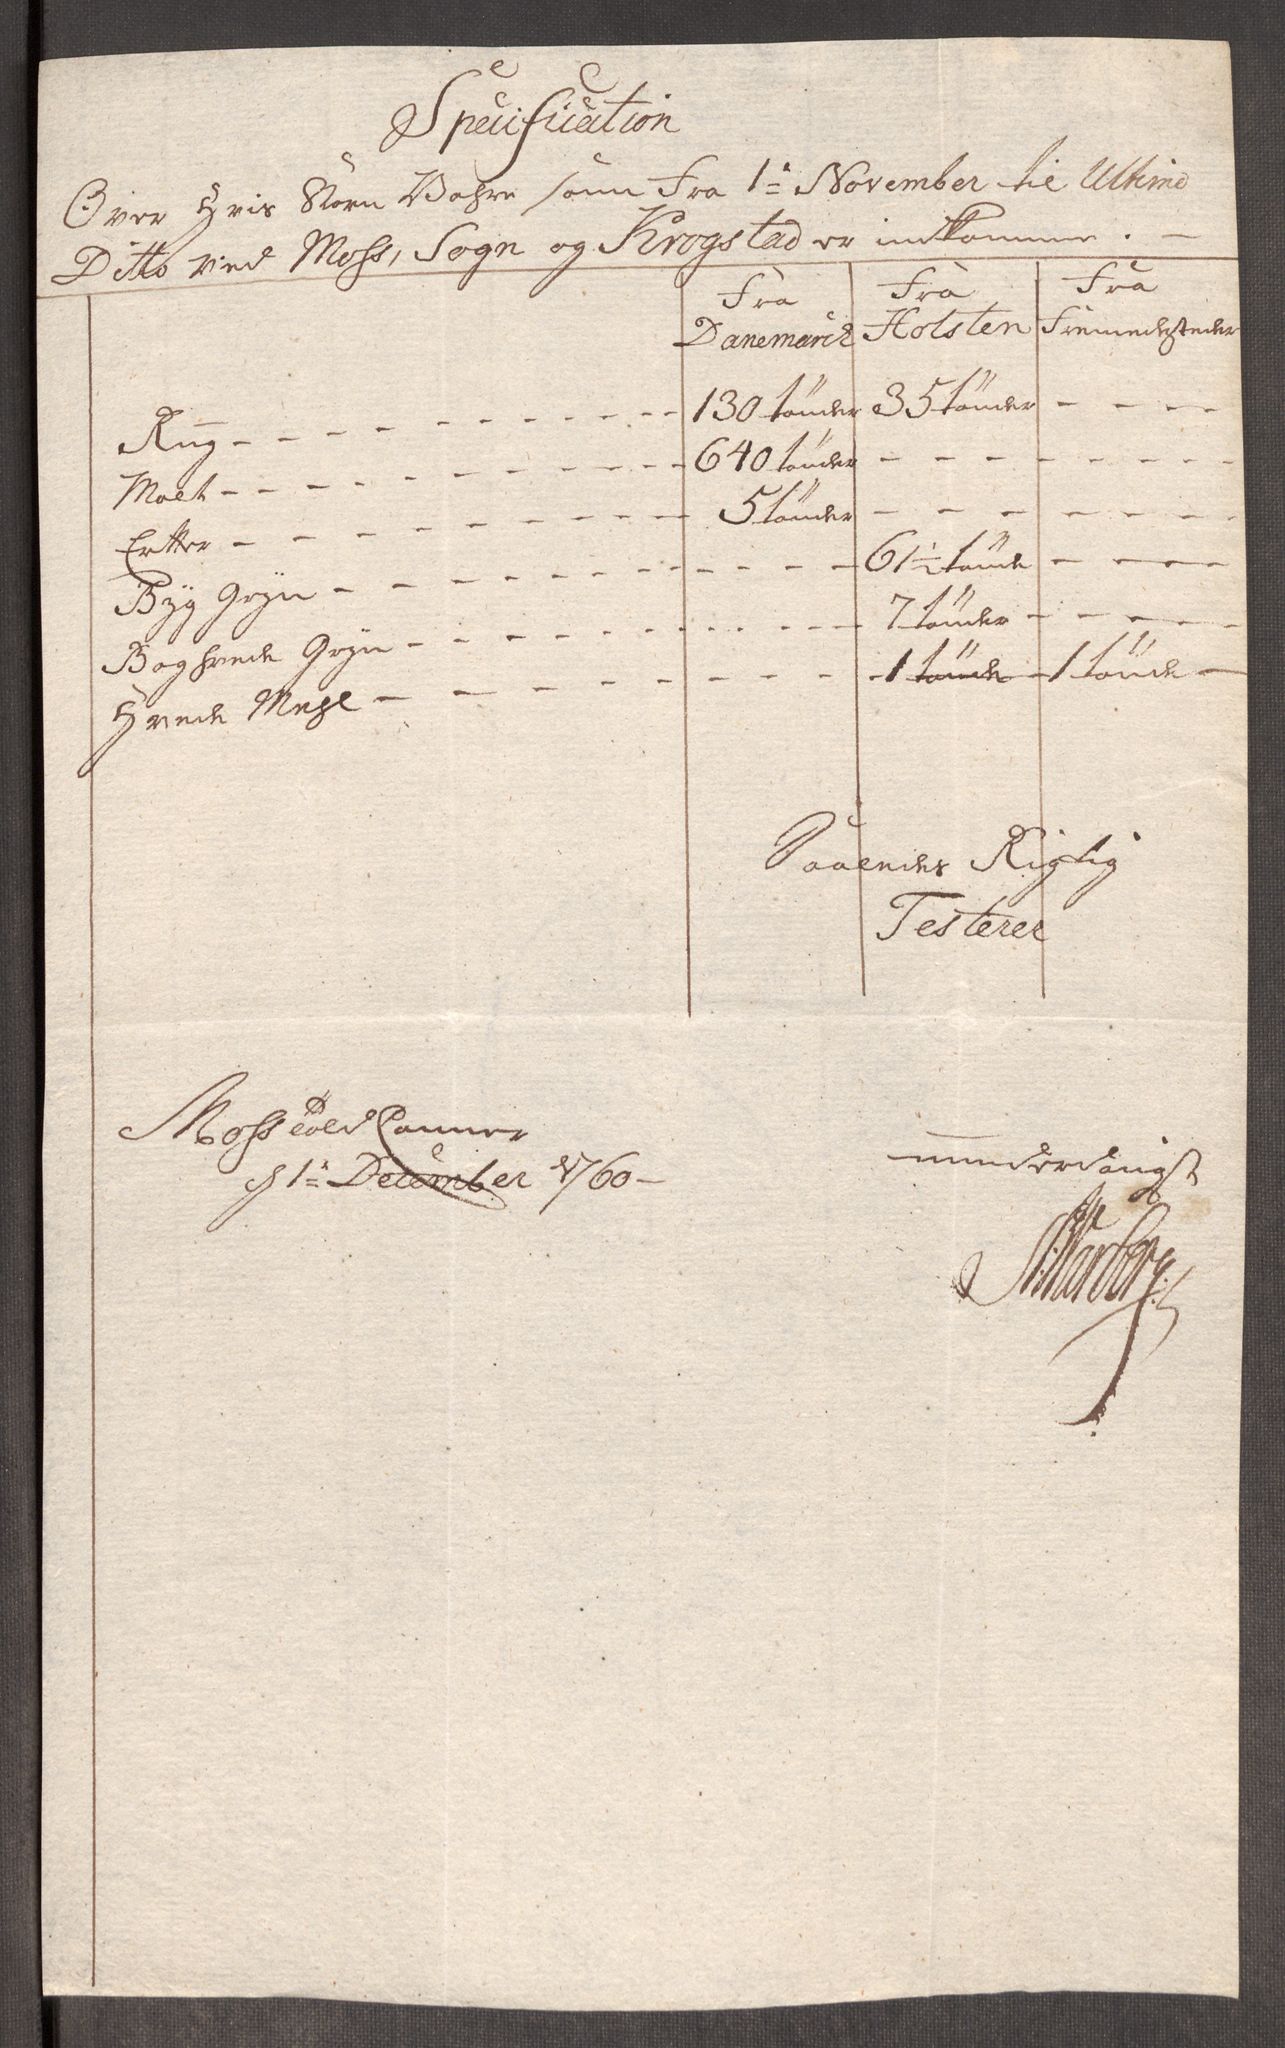 Specification
Over Hvis Korn Vahre som Fra 1ẽ November til Ultimo
Ditto ved Moss, Sogn og Krogstad er indkomme. –
Fra Fra Fra
Danemarck Holsten Fremmedesteder
Rug - - - 130 tönder 35 tönder - - -
Malt - - - 640 tönder - - -
Ertter - - - 5 tönder - - -
Byg Gryn - - - 61½ tönde - - -
Boghvede Gryn - - - 7 tönder - - -
Hvede Mehl - - - 1 tönde 1 tönde -
Saaledes Rigtig
Testerer
Moss Told Cammer
d 1ẽ December 1760 – underdanigst